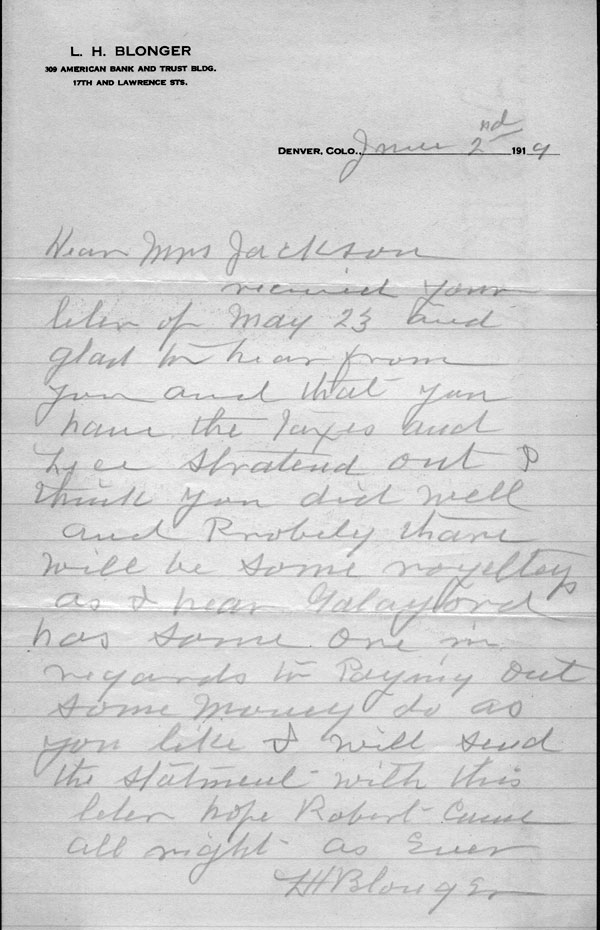 L. H. BLONGER
309 AMERICAN BANK AND TRUST BLDG.
17TH AND LAWRENCE STS.
DENVER, COLO., June 2nd 1919
Dear Mrs Jackson
recived your
leter of May 23 and
glad to hear from
you and that you
have the Taxes and
stratend out I
think you did well
and Probely thare
will be some royeltys
as I hear Galayford
has some one in
regards to Paying out
some money do as
you like I will send
the statment with this
leter hope Robert Came
all right as Ever
LHBlonger